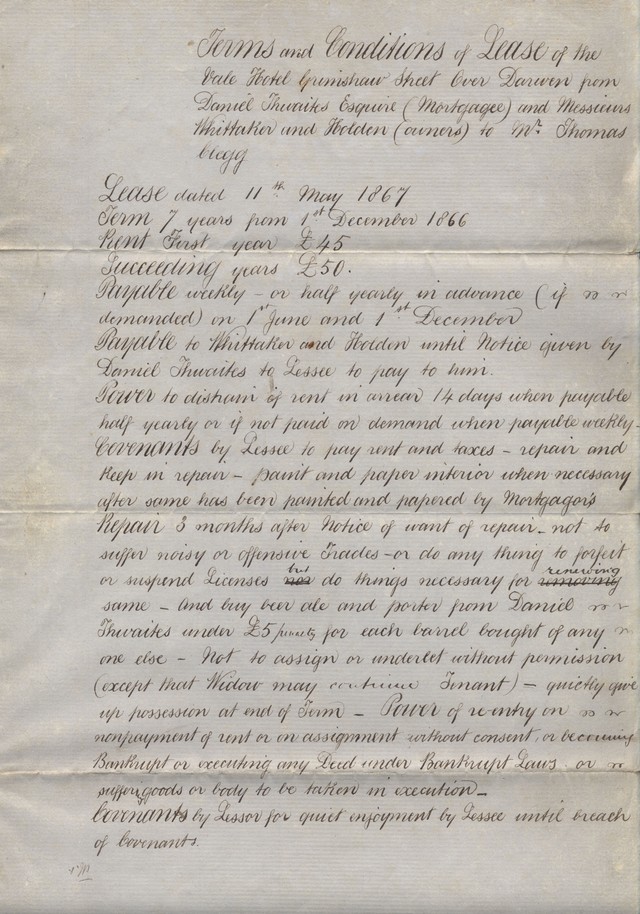 Terms and Conditions of Lease of the
Vale Hotel Grimshaw Street Over Darwen from
Daniel Thwaites Esquire (Mortgagee) and Messieurs
Whittaker and Holden (owners) to Mr. Thomas
Clegg
Lease dated 11th May 1867
Term 7 years from 1st December 1866
Rent First year £45
Succeeding years £50.
Payable weekly - or half yearly in advance (if
demanded) on 1st June and 1st December
Payable to Whittaker and Holden until Notice given by
Daniel Thwaites to Lessee to pay to him.
Power to distrain if rent in arrear 14 days when payable
half yearly or if not paid on demand when payable weekly-
Covenants by Lessee to pay rent and taxes - repair and
keep in repair - paint and paper interior when necessary
after same has been painted and papered by Mortgagors
Repair 3 months after Notice of want of repair - not to
suffer noisy or offensive Trades - or do any thing to forfeit
or suspend Licenses nor but do things necessary for removing renewing
same - And buy beer ale and porter from Daniel
Thwaites under £5 penalty for each barrel bought of any
one else - Not to assign or underlet without permission
(except that Widow may continue Tenant) - quietly give
up possession at end of Term - Power of re-entry on
nonpayment of rent or on assignment without consent, or becoming
Bankrupt or executing any Deed under Bankrupt Laws. or
suffering goods or body to be taken in execution -
Covenants by Lessor for quiet enjoyment by Lessee until breach
of Covenants.